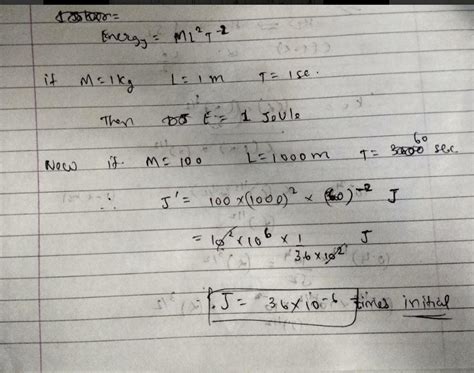 Energy = ML²T⁻²
if M = 1 kg L = 1 m T = 1 sec.
Then E = 1 Joule
Now if M = 100 L = 1000 m T = 60 sec
J' = 100 × (1000)² × (60)⁻² J
= 10² × 10⁶ × 1/3.6 × 10² J
J = 3.6 × 10⁻⁶ times initial